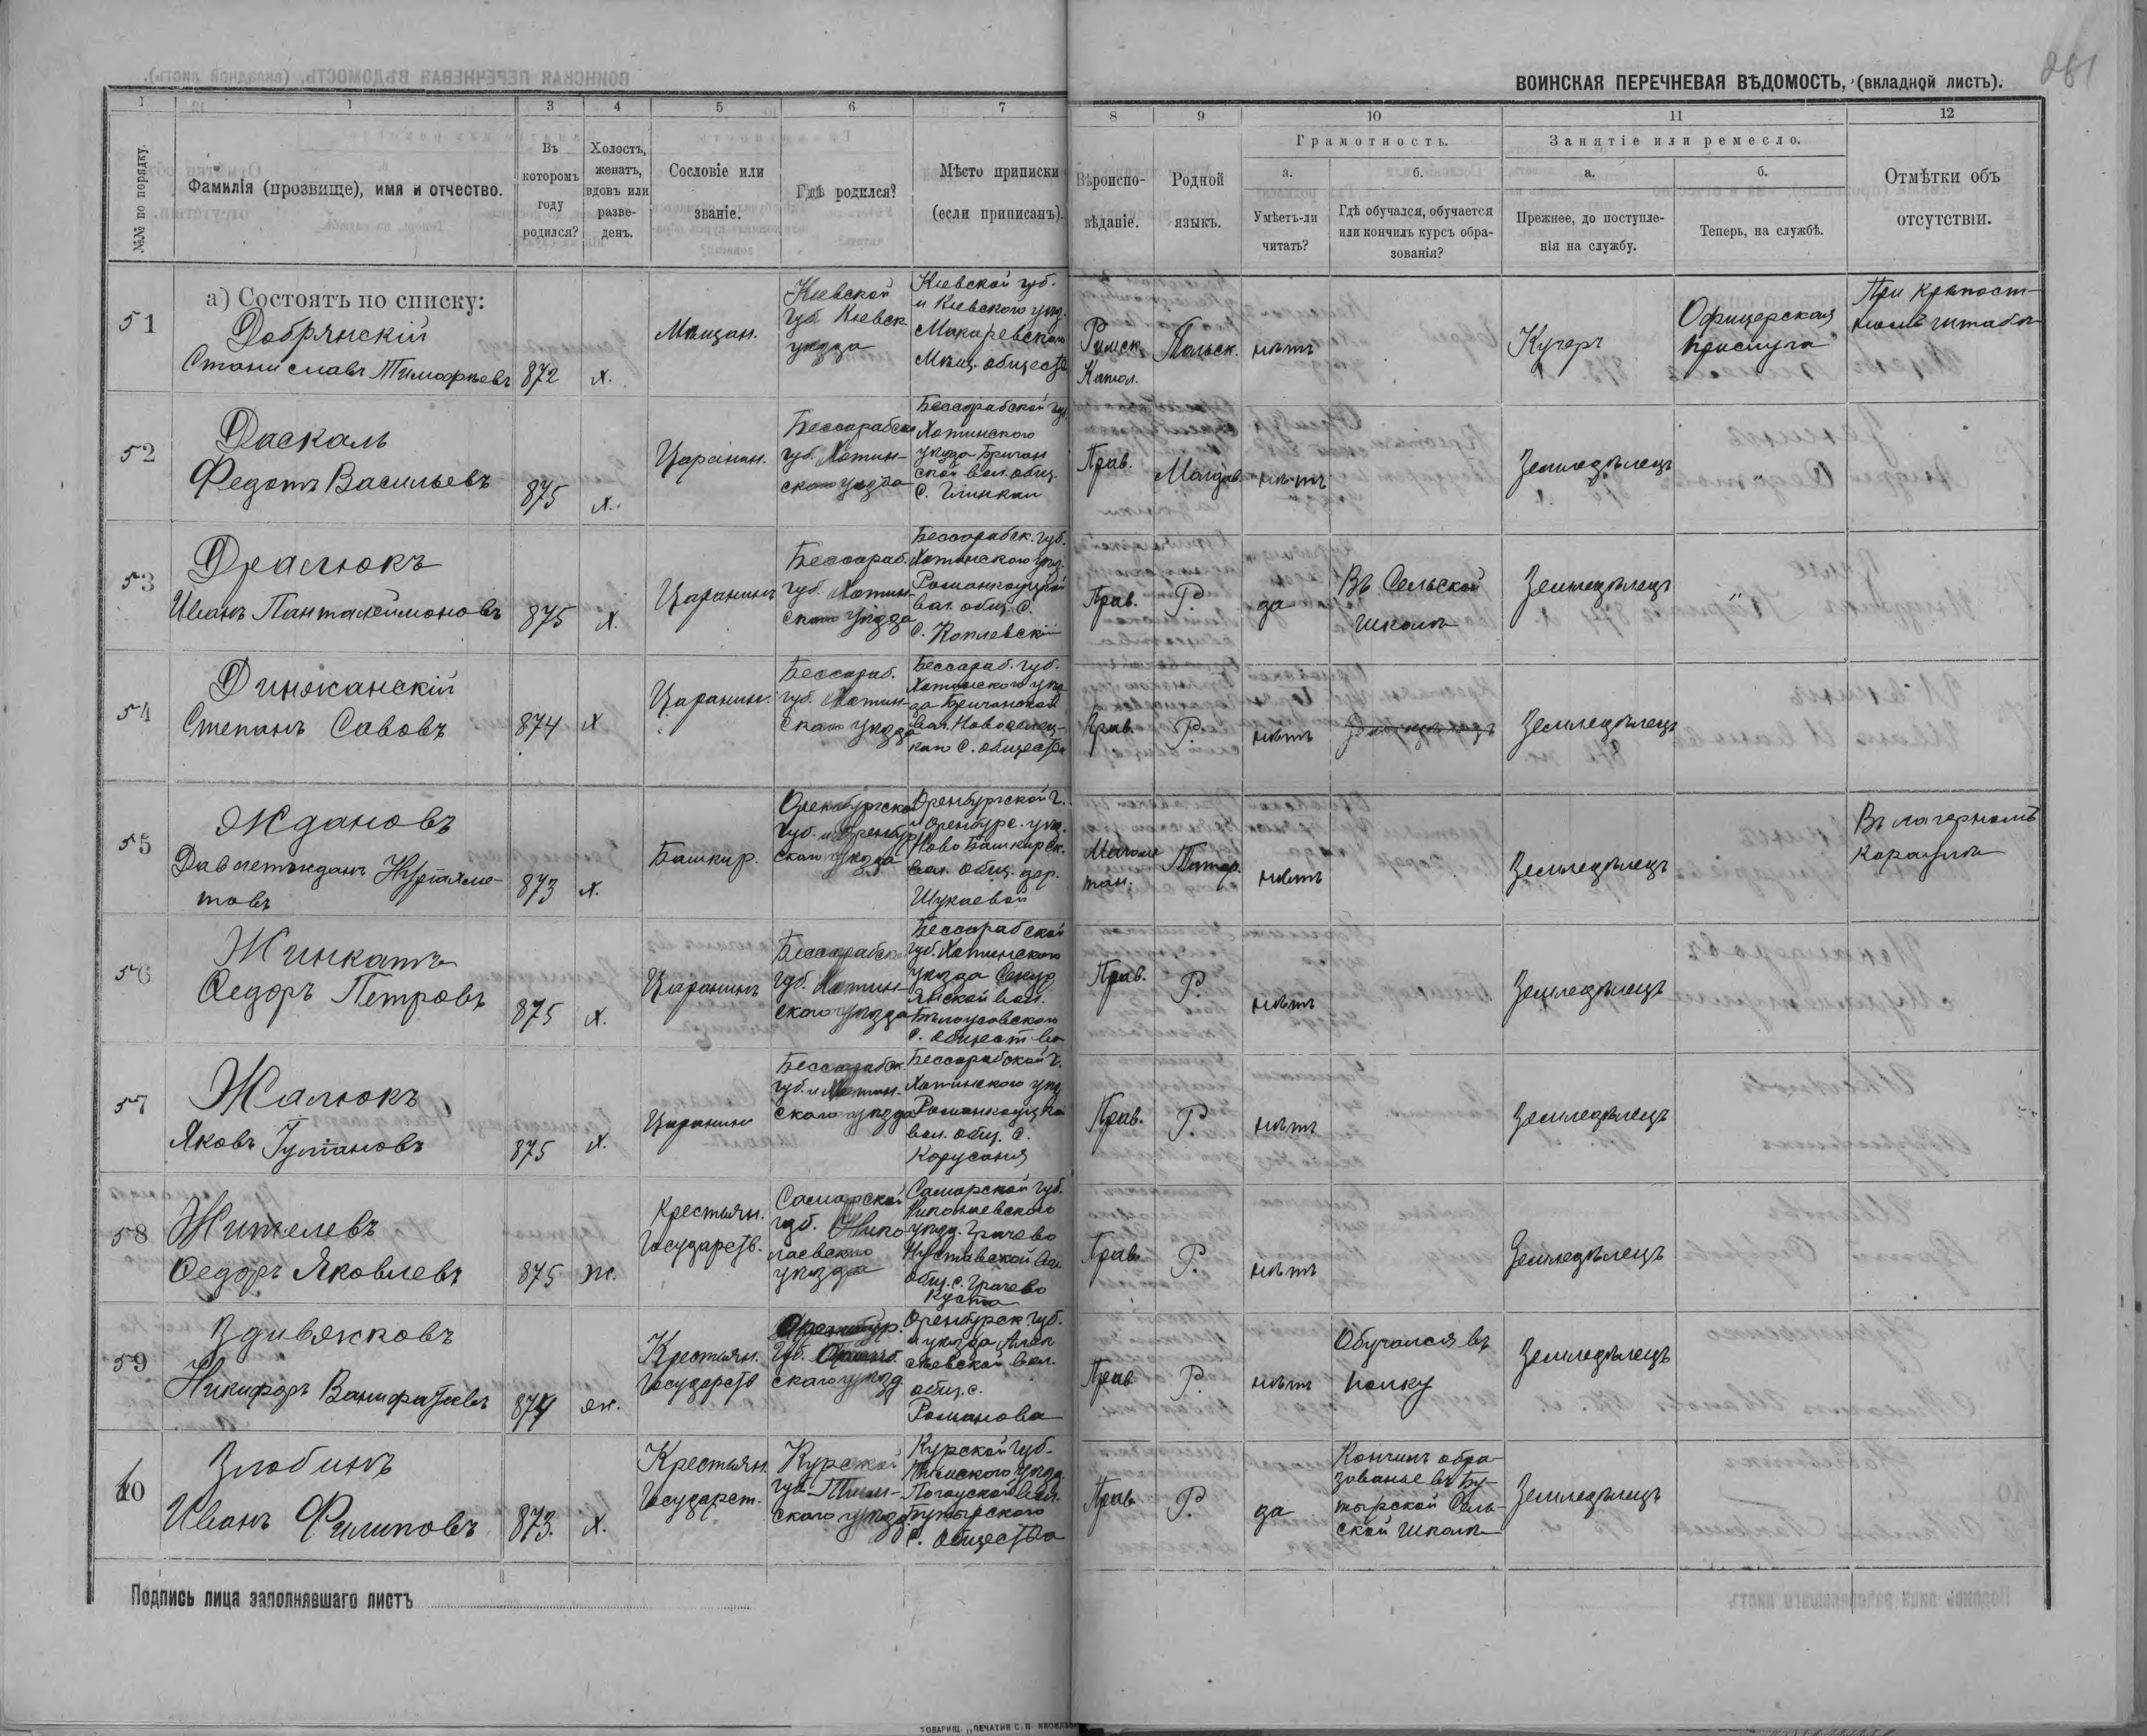 281
ВОИНСКАЯ ПЕРЕЧНЕВАЯ ВѢДОМОСТЬ, (вкладной листъ).
1 1 3 4 5 6 7 8 9 10 11 12
№№ по порядку.
Фамилія (прозвище), имя и отчество.
Въ которомъ году родился?
Холостъ, женатъ, вдовъ или разве-денъ.
Сословіе или званіе.
Гдѣ родился?
Мѣсто приписки (если приписанъ).
Вѣроиспо-вѣданіе.
Родной языкъ.
Грамотность.
а. Умѣетъ-ли читать?
б. Гдѣ обучался, обучается или кончилъ курсъ обра-зованія?
Занятіе или ремесло.
а. Прежнее, до поступле-нія на службу.
б. Теперь, на службѣ.
Отмѣтки объ отсутствіи.
а) Состоятъ по списку:
51
Добрянскій
Станиславъ Тимофѣевъ
872
х.
Мѣщан.
Кіевской
губ. Кіевск.
уѣзда
Кіевской губ.
и Кіевского уѣз.
Макаревского
Мѣщ. общест
Римск.
Катол.
Польск.
нѣтъ
Кучеръ
Офицерская
прислуга
При крѣпост-
номъ штабѣ
52
Даскалъ
Федотъ Васильевъ
875
х.
Царанин.
Бессарабской
губ. Хотин-
ского уѣзда
Бессарабской губ.
Хотинского
уѣзда Бричан
ской вол. общ.
с. Глинкаи
Прав.
Молдав.
нѣтъ
Земледѣлецъ
"
53
Дралюкъ
Иванъ Панталеймоновъ
875
х.
Царанинъ
Бессараб.
губ. Хотин-
ского уѣзда
Бессарабск. губ.
Хотинского уѣз.
Романкоуцкой
вол. общ. с.
Прав.
Р.
да
Въ Сельской
школѣ
Земледѣлецъ
"
54
Динжанскій
Степанъ Савовъ
874
х
Царанин.
Бессараб.
губ. Хотин-
ского уѣзда
Бессараб. губ.
Хотинского уѣз-
да Бричанской
вол. Новоселиц-
каго с. общества
Прав.
Р.
нѣтъ
Земледѣлецъ
55
Ждановъ
Давлетъжданъ Нургахме-
товъ
873
х.
Башкир.
Оренбургской
губ. и Оренбур
ского уѣзда
Оренбургской г.
и Оренбург. уѣз.
Ново Башкирск.
вол. общ. дер.
Шукаевой
Магоме
тан.
Татар.
нѣтъ
Земледѣлецъ
Въ лагерномъ
караулѣ
56
Жинкатъ
Ѳедоръ Петровъ
875
х.
Царанинъ
Бессарабской
губ. Хотин-
ского уѣзда
Бессарабской
губ. Хотинского
уѣзда Секур
янской вол.
Бѣлоусовского
с. общест ва
Прав.
Р.
нѣтъ
Земледѣлецъ
57
Жалюкъ
Яковъ Гуліановъ
875
х.
Царанинъ
Бессарабск.
губ. и Хотин.
ского уѣзда
Бессарабской г.
Хотинского уѣз
Романкоуцкой
вол. общ. с.
Корусания
Прав.
Р.
нѣтъ
Земледѣлецъ
58
Жителевъ
Ѳедоръ Яковлевъ
875
ж.
Крестьян.
Государств.
Самарской
губ. Нико
лаевского
уѣзда
Самарской губ.
Николаевского
уѣзд. Грачево
Кустовской вол
общ. с. Грачево
Куста
Прав.
Р.
нѣтъ
Земледѣлецъ
59
Здвижковъ
Никифоръ Ванифатьевъ
874
ж.
Крестьян.
Государств
Оренбур.
губ. Оренб.
ского уѣзд
Оренбургск губ.
и уѣзда Алек
сѣевской вол.
общ. с.
Романова
Прав
Р.
нѣтъ
Обучался въ
полку
Земледѣлецъ
60
Злобинъ
Иванъ Филиповъ
873.
х.
Крестьян.
Государст.
Курской
губ. Тим-
ского уѣзда
Курской губ.
Тимского уѣзда
вол.
Бутырского
с. общества
Прав
Р.
да
Кончилъ обра-
зованье въ Бу-
тырской Сель-
ской школѣ
Земледѣлецъ
Подпись лица заполнявшаго листъ